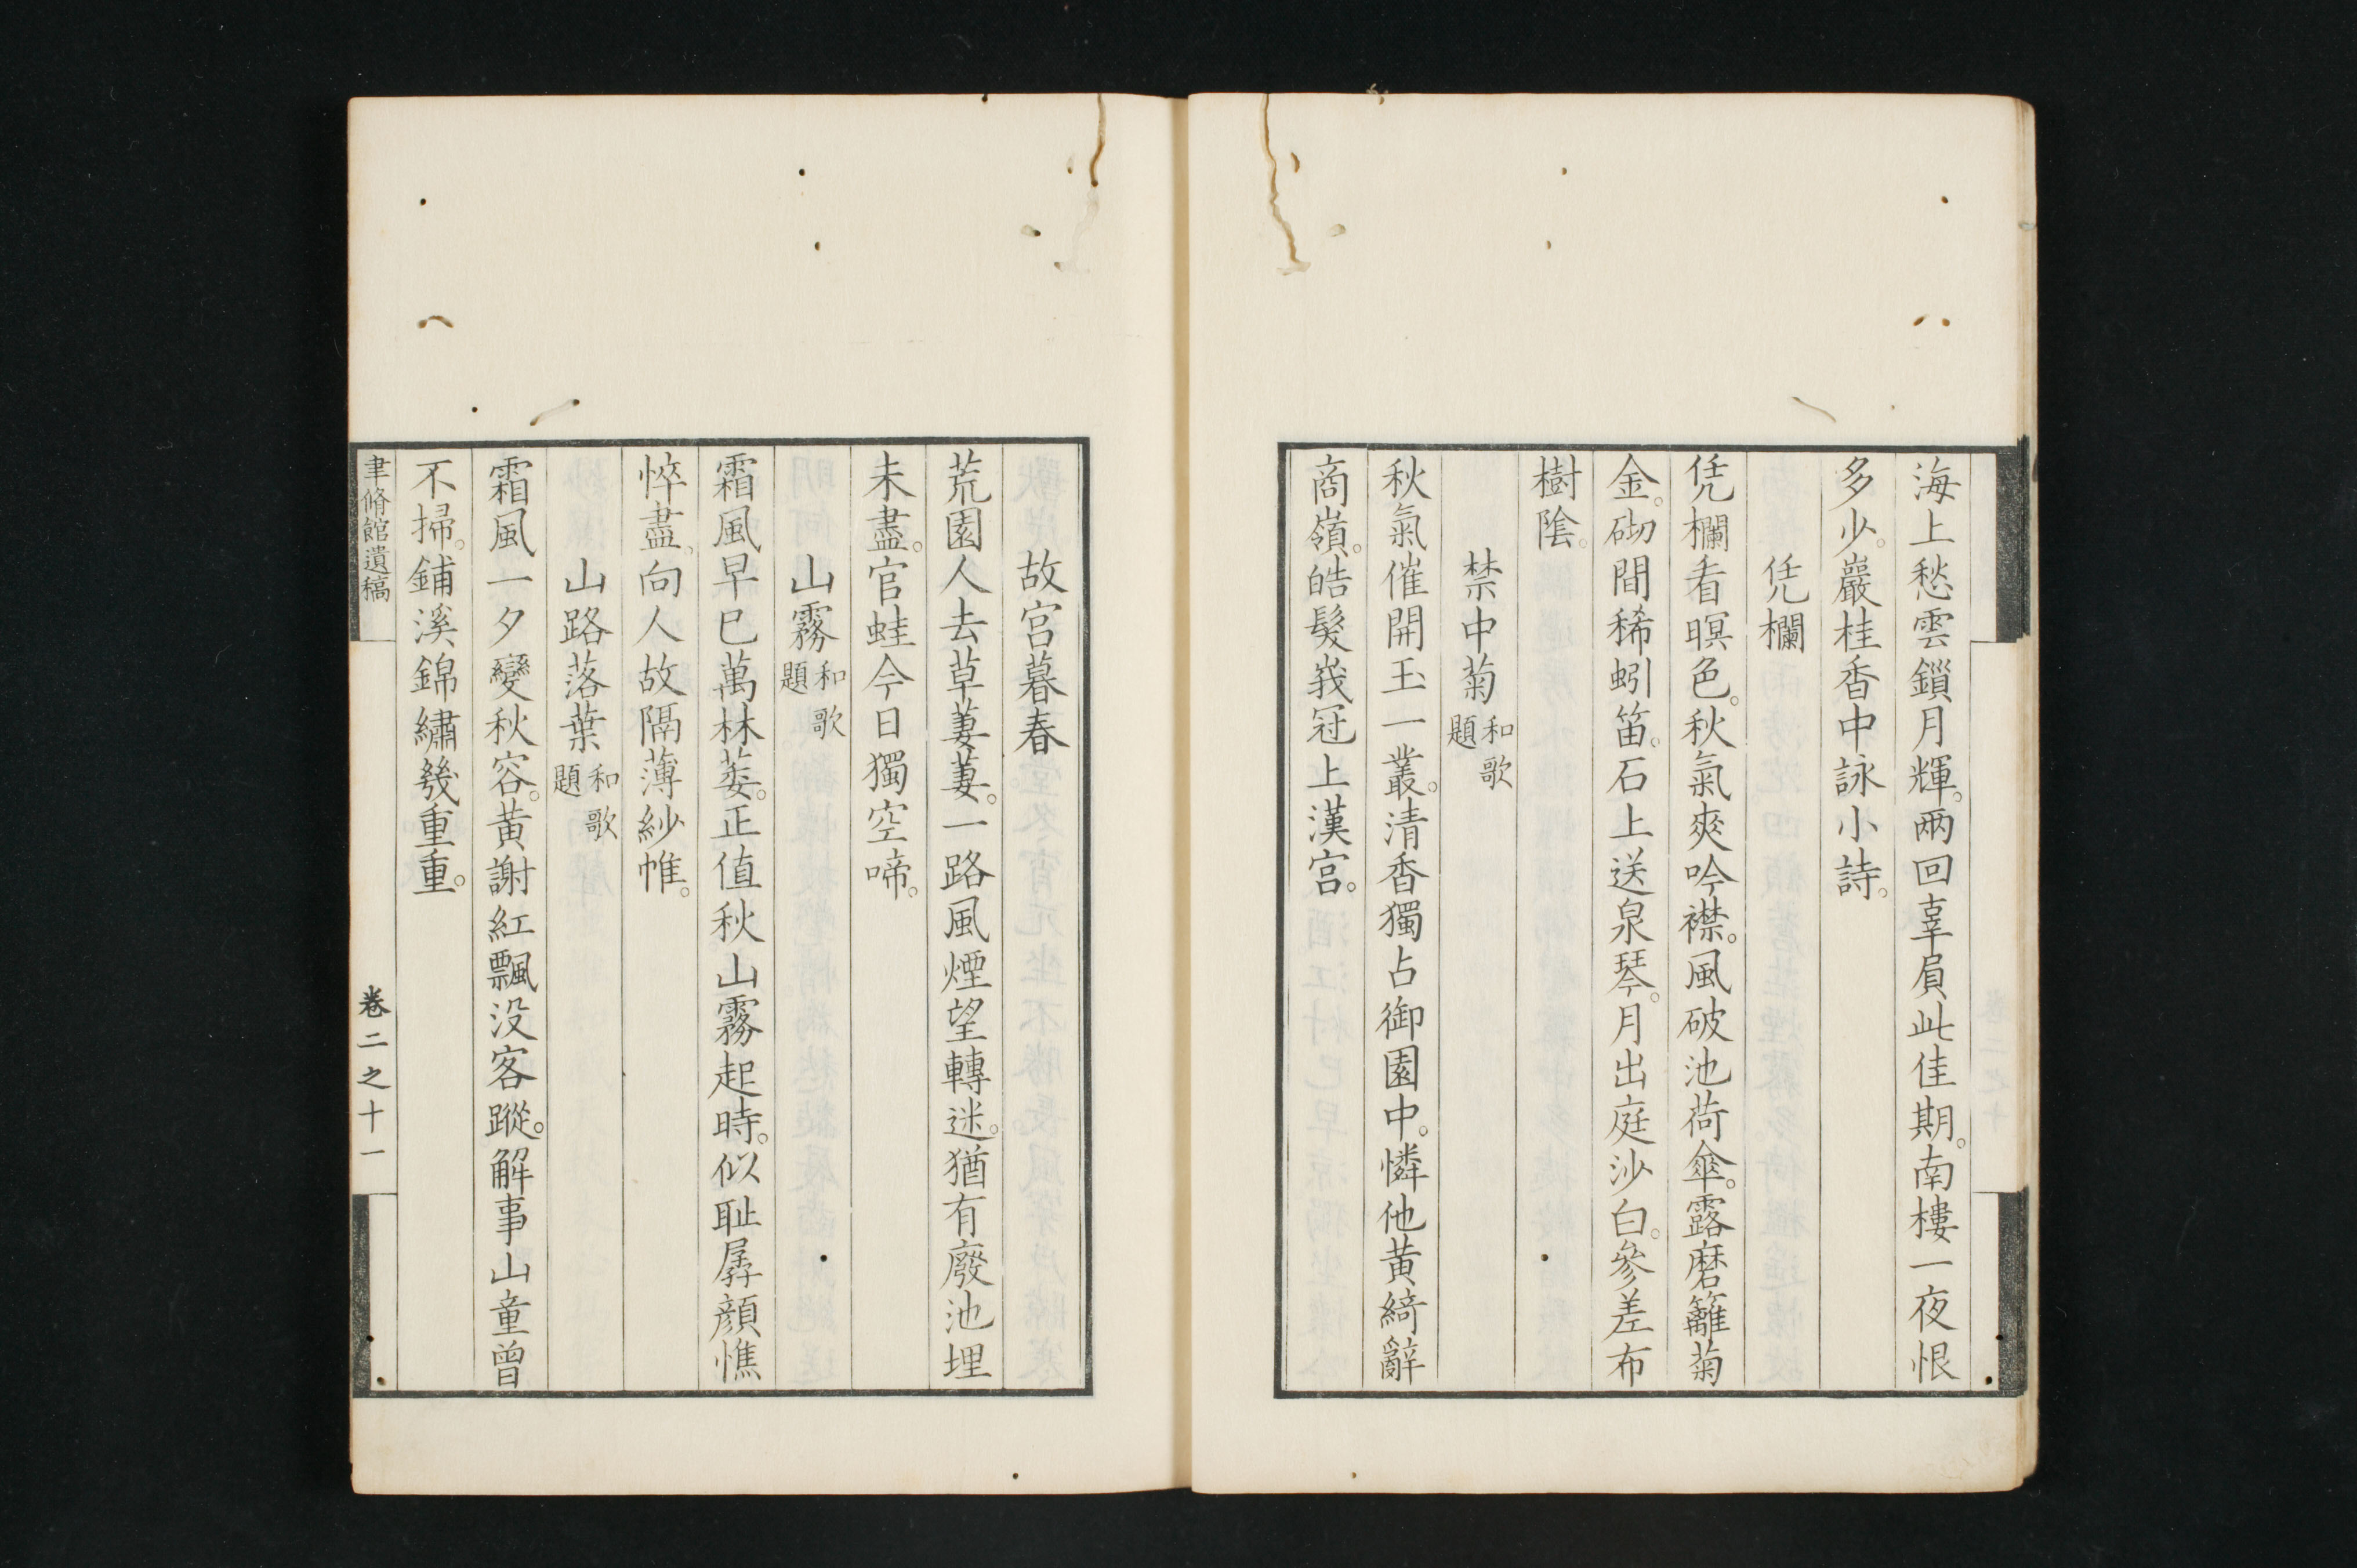 海上愁雲鎖月輝。兩回辜負此佳期。南樓一夜恨
多少。巖桂香中詠小詩。
凭欄
凭欄看暝色。秋氣爽吟襟。風破池荷傘。露磨籬菊
金。砌間稀蚓笛。石上送泉琴。月出庭沙白。參差布
樹陰。
禁中菊 和歌題
秋氣催開玉一叢。清香獨占御園中。憐他黃綺辭
商嶺。皓髮峩冠上漢宮。
故宮暮春
荒園人去草萋萋。一路風煙望轉迷。猶有廢池埋
未盡。官蛙今日獨空啼。
山霧 和歌題
霜風早已萬林萎。正值秋山霧起時。似耻孱顏憔
悴盡。向人故隔薄紗帷。
山路落葉 和歌題
霜風一夕變秋容。黃謝紅飄没客蹤。解事山童曾
不掃。鋪溪錦繡幾重重。
聿脩館遺稿
卷二之十一